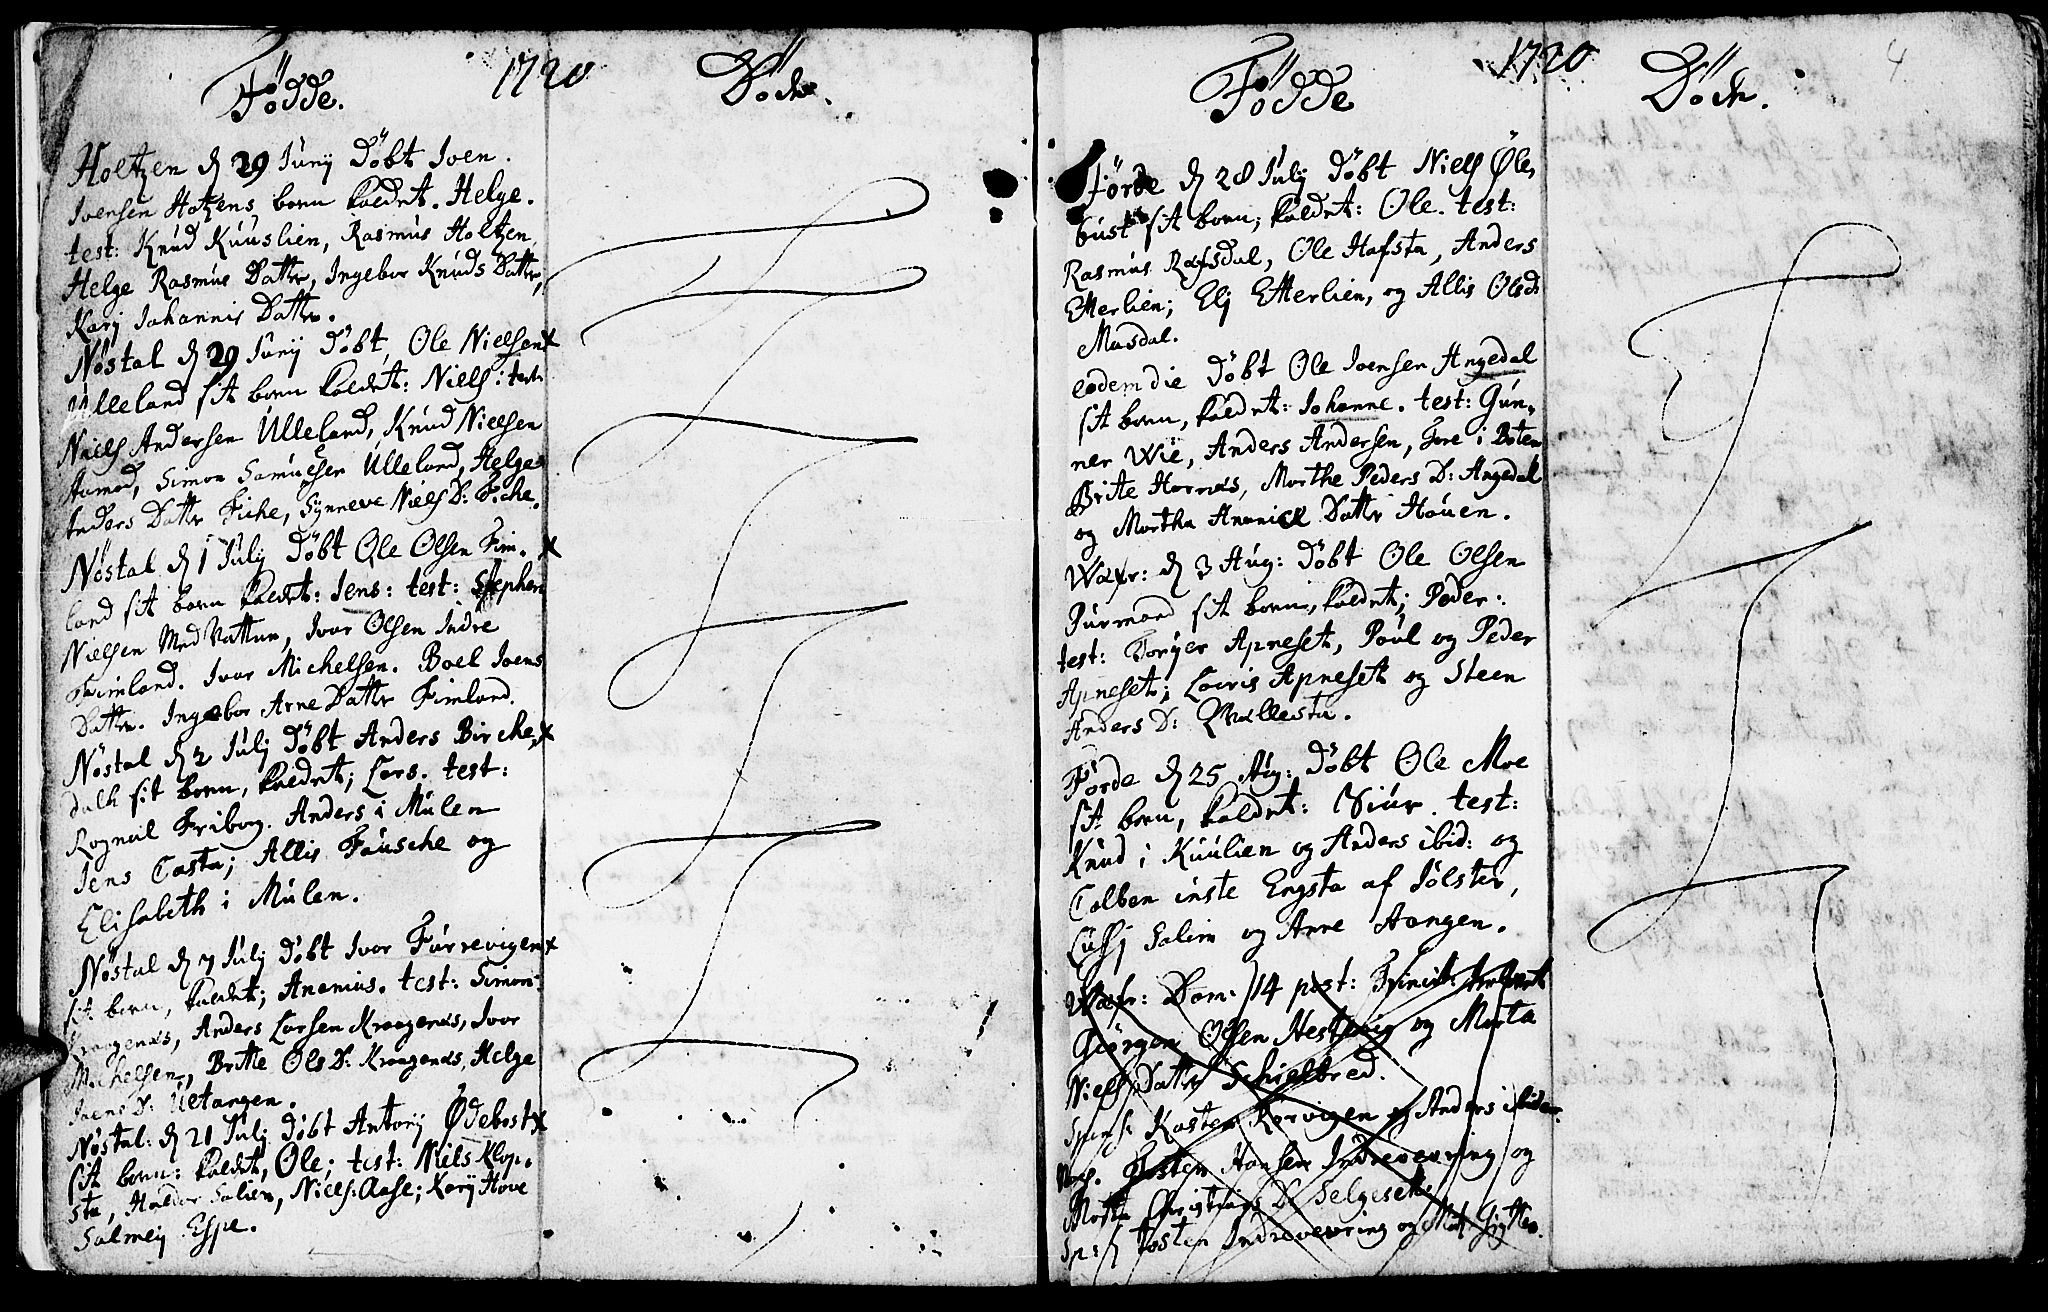 1720
Födde.
Döde.
Holtzen d 29 Junij döbt Joen.
Joensen Hotzens born kaldet. Helge.
test: Knud Kuuslien, Rasmus Holtzen
Helge Rasmus Datter, Ingebor Knuds Datter,
Karj Johannis Datter.
Nöstal d 29 Junij döbt, Ole Nielsen x
Ulleland sit born kaldet: Niels: test:
Niels Andersen Ulleland, Knud Nielsen
Aamod, Simon Samuelsen Ulleland, Helge
Anders Datter Fiche, Synneve Niels D: Fiche.
Nöstal d 1 Julij döbt Ole Olsen Fim- x
land sit born kaldet: Jens: test: Stephen
Nielsen Med Vattun, Ivar Olsen Indre
Fimland. Ivar Michelsen. Boel Joens
Datter. Ingebor Arne Datter Fimland.
Nöstal d 2 Julij döbt Anders Birche, x
dalh sit born, kaldet; Lars. test:
Rognail Fribog. Anders i Mulen
Jens Casta; Allis Fausche og
Elisabeth i Mulen.
Nöstal d 7 Julij döbt Ivar Furrevigen x
sit born, kaldet; Ananias. test: Simon
Kraagenæs, Anders Larsen Kraagenæs, Ivar
Michelsen, Britte Ols D: Kraagenæs, Helge
Joens D: Uetangen.
Nöstal: d 21 Julij döbt Antonij Ødebost x
sit born: kaldet, Ole; test: Niels Klop,
sta, Haldor Salien, Niels: Aase; Karj Hove
Salmeij Espe.
1720
4
Födde
Döde.
Förde d 28 Julij döbt Niels Øle,
bust sit born; kaldet: Ole. test:
Rasmus Rafsdal, Ole Hafsta, Anders
Etterlien; Elj Etterlien, og Allis Olsd:
Musdal.
eodem die döbt Ole Joensen Angedal
sit born, kaldet: Johanne. test: Gun,
ner Wie, Anders Andersen, Tore i Boten
Britte Hornæs, Marthe Peders D: Angedal
og Martha Ananiæ Datter Hauen.
Wæfr: d 3 Aug: döbt Ole Olsen
Gurmand sit born, kaldet; Peder:
test: Torger Apneset, Poul og Peder
Apneset; Lauris Apneset og Steen
Anders D: Qvallesta.
Förde d 25 Aug: döbt Ole Moe
sit born, kaldet: Siur. test:
Knud i Kuulien og Anders ibid: og
Colben inste Engsta af Jölster,
Lussj Salim og Anne Aangen.
Wæfr: Dom: 14 post: Trinit:
Giörgen Olsen Hestevig og Marta
Niels Datter Schielbred.
Spons: Kasten Korvigen og Anders ibidem
Torsten Hansen Indrevevring og
Marta Christians D: Selgeseth.
Sp: Tosten Indrevevring og